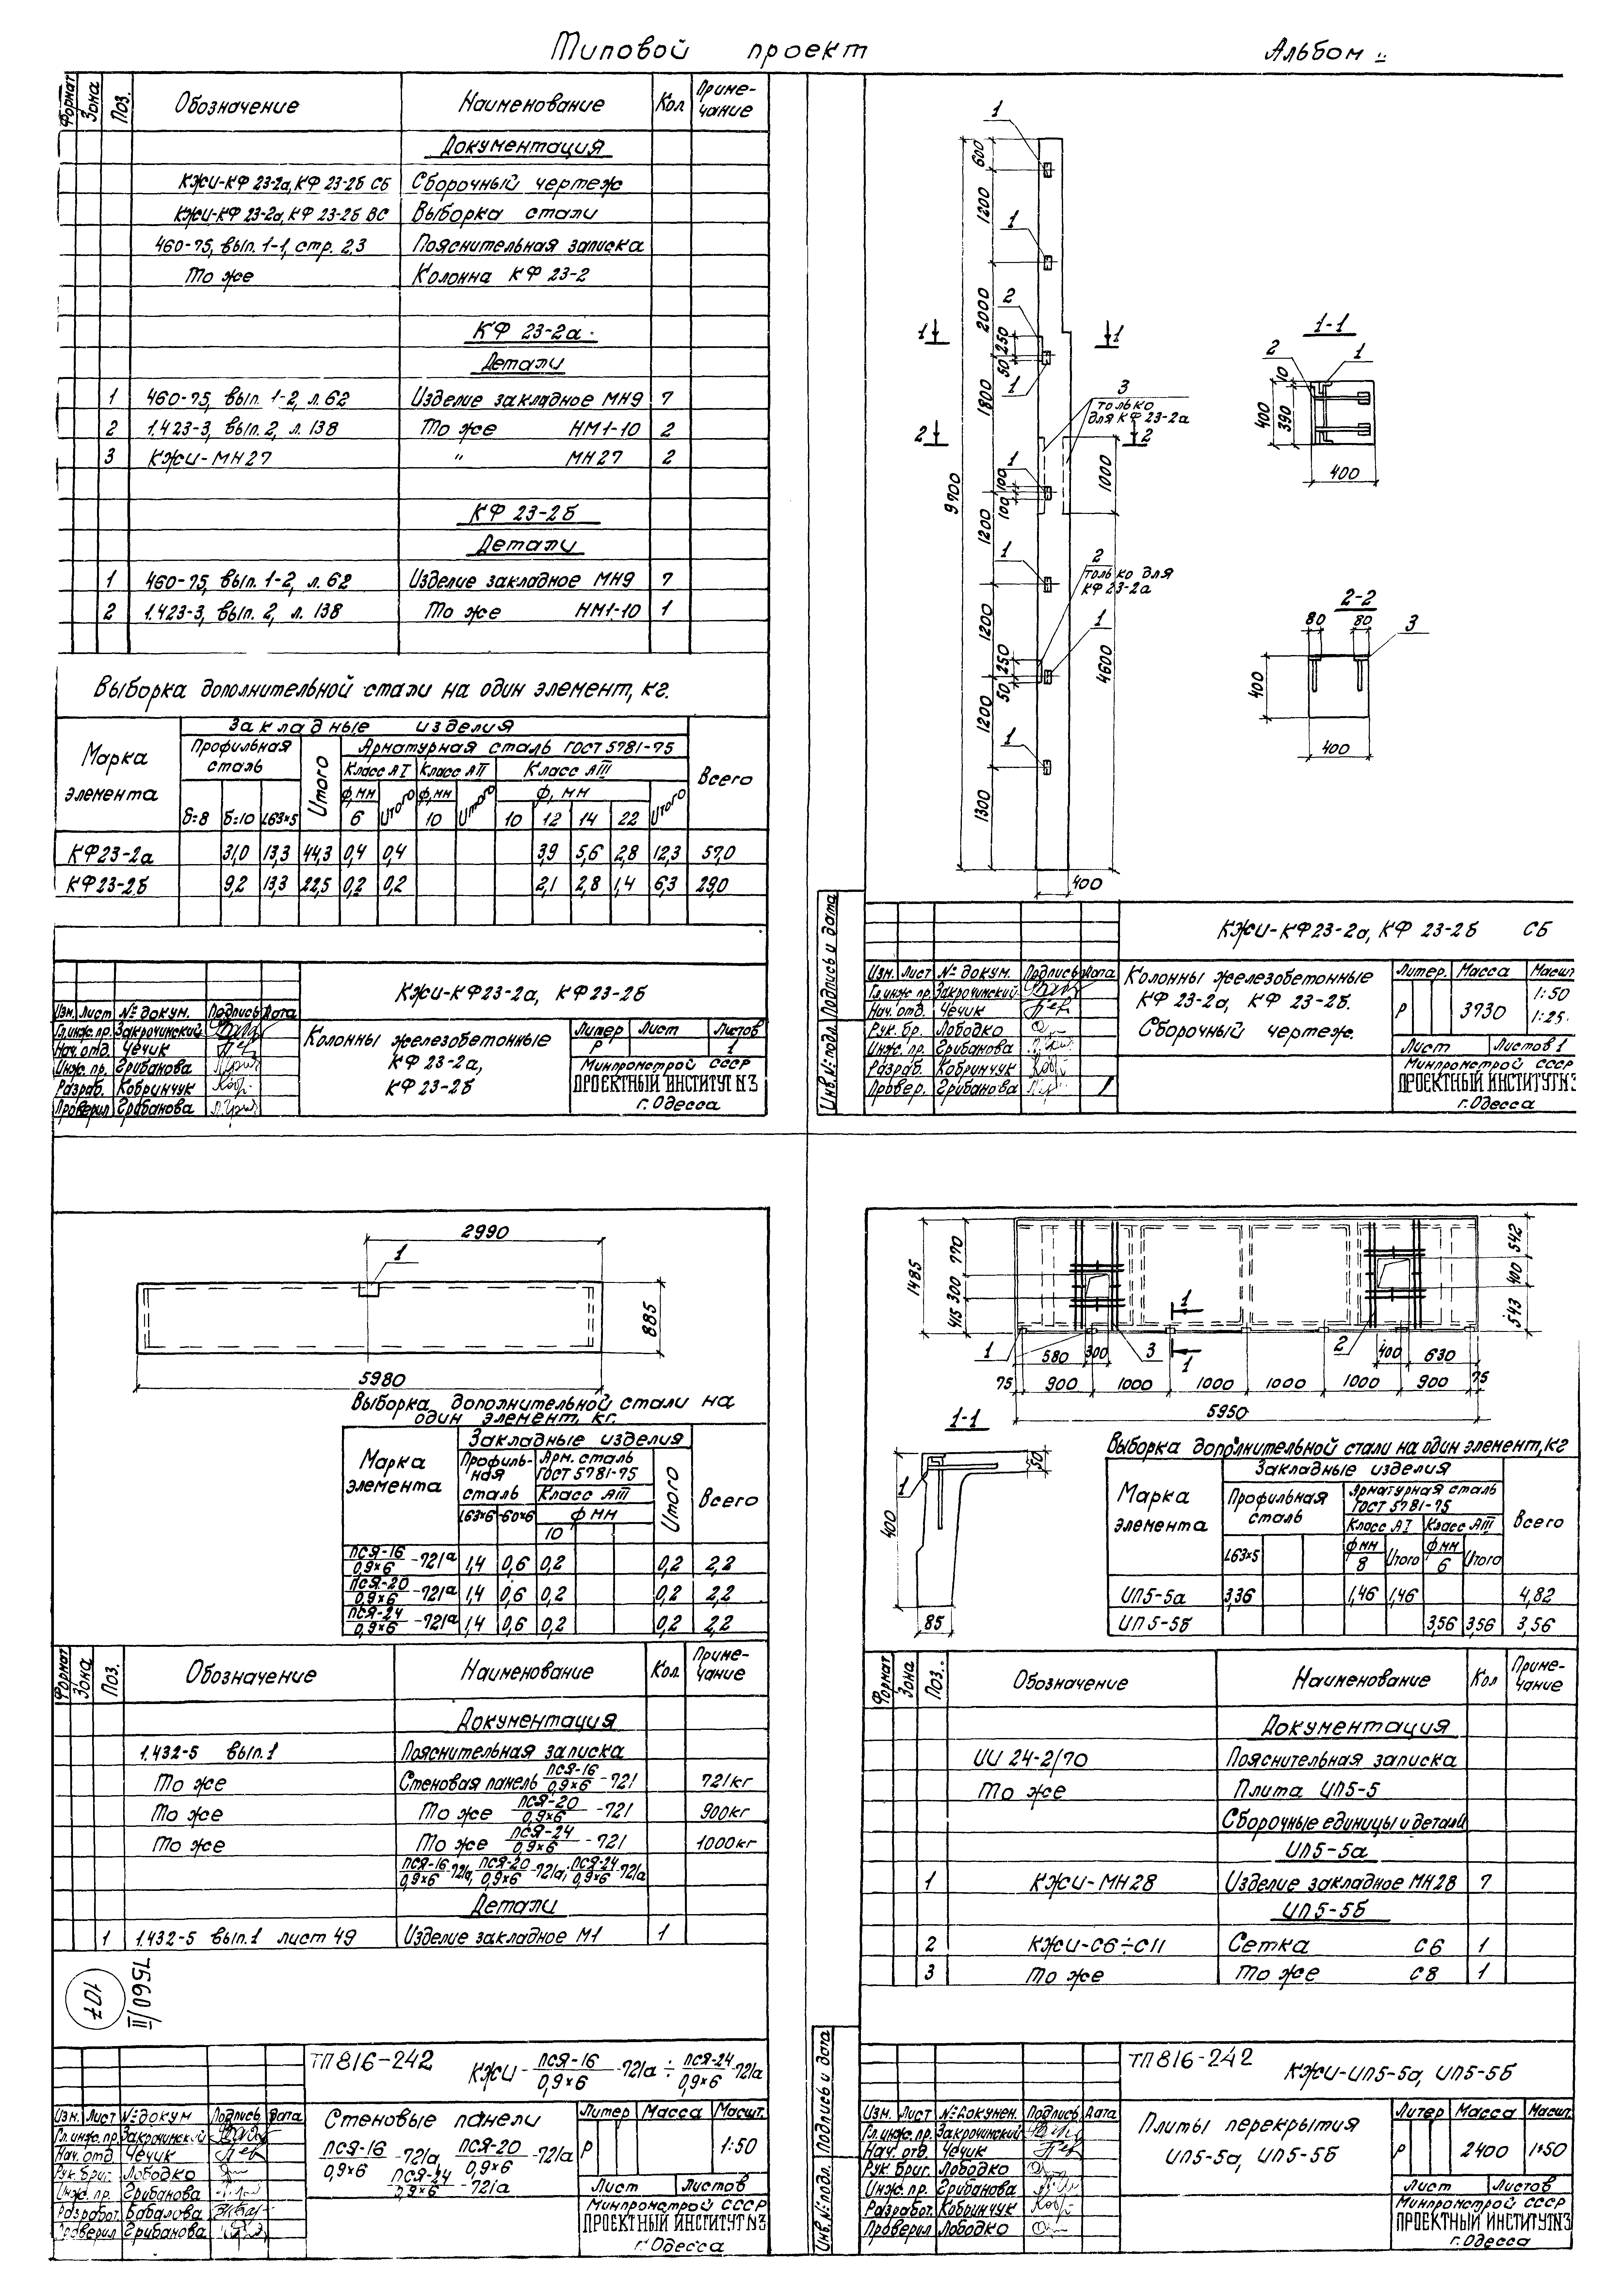 Типовой проект
Альбом II
Формат Зона Поз. Обозначение Наименование Кол Приме-чание
Документация
КЖИ-КФ 23-2а, КФ 23-2б СБ Сборочный чертеж
КЖИ-КФ 23-2а, КФ 23-2б ВС Выборка стали
460-75, вып. 1-1, стр. 2,3 Пояснительная записка
То же Колонна КФ 23-2
КФ 23-2а
Детали
1 460-75, вып. 1-2, л. 62 Изделие закладное МН9 7
2 1.423-3, вып. 2, л. 138 То же НМ1-10 2
3 КЖИ-МН27 " МН27 2
КФ 23-2б
Детали
1 460-75, вып. 1-2, л. 62 Изделие закладное МН9 7
2 1.423-3, вып. 2, л. 138 То же НМ1-10 1
Выборка дополнительной стали на один элемент, кг.
Марка элемента
Закладные изделия
Профильная сталь
Итого
Арматурная сталь ГОСТ 5781-75
Всего
Класс АI Класс АII Класс АIII
ф, мм Итого ф, мм Итого ф, мм Итого
δ=8 δ=10 L63×5 6 10 10 12 14 22
КФ23-2а 31,0 13,3 44,3 0,4 0,4 3,9 5,6 2,8 12,3 57,0
КФ23-2б 9,2 13,3 22,5 0,2 0,2 2,1 2,8 1,4 6,3 29,0
КЖИ-КФ23-2а, КФ23-2б
Изм. Лист № докум. Подпись Дата
Гл.инж.пр. Закрочинский
Нач. отд. Чечик
Инж. пр. Грибанова
Разраб. Кобринчук
Проверил Грибанова
Колонны железобетонные
КФ 23-2а,
КФ 23-2б
Литер Лист Листов
Р 1
Минпромстрой СССР
ПРОЕКТНЫЙ ИНСТИТУТ №3
г. Одесса
1
600
1200
1
2000
2
1 1
250
50
1
1800
3
только
для КФ 23-2а
2 2
9700
1
100
100
1000
1200
1
2
только для
КФ 23-2а
1200
1
250
50
4600
1200
1
1300
400
1-1
2 1
10
400
390
400
2-2
80 80
3
400
400
Инв.№ подл. Подпись и дата
КЖИ-КФ23-2а, КФ 23-2б СБ
Изм. Лист № докум. Подпись Дата
Гл.инж.пр. Закрочинский
Нач. отд. Чечик
Рук. бр. Лободко
Инж. пр. Грибанова
Разраб. Кобринчук
Провер. Грибанова
Колонны железобетонные
КФ 23-2а, КФ 23-2б.
Сборочный чертеж.
Литер. Масса Масшт
Р 3730 1:50
1:25.
Лист Листов 1
Минпромстрой СССР
ПРОЕКТНЫЙ ИНСТИТУТ №3
г. Одесса
2990
1
885
5980
Выборка дополнительной стали на
один элемент, кг.
Марка элемента
Закладные изделия
Профиль-ная сталь
Арм. сталь ГОСТ 5781-75
Класс АIII
Итого
Всего
L63×6 -60×6 ф мм
10
ПСЯ-16/0,9×6 -721а 1,4 0,6 0,2 0,2 2,2
ПСЯ-20/0,9×6 -721а 1,4 0,6 0,2 0,2 2,2
ПСЯ-24/0,9×6 -721а 1,4 0,6 0,2 0,2 2,2
Формат Зона Поз. Обозначение Наименование Кол. Приме-чание
Документация
1.432-5 вып.1 Пояснительная записка
То же Стеновая панель ПСЯ-16/0,9×6 -721 721кг
То же То же ПСЯ-20/0,9×6 -721 900кг
То же То же ПСЯ-24/0,9×6 -721 1000кг
ПСЯ-16/0,9×6 -721а, ПСЯ-20/0,9×6 -721а, ПСЯ-24/0,9×6 -721а
Детали
1 1.432-5 вып.1 лист 49 Изделие закладное М1 1
107
7560/II
ТП816-242 КЖИ- ПСЯ-16/0,9×6 -721а ÷ ПСЯ-24/0,9×6 -721а
Изм. Лист № докум Подпись Дата
Гл.инж.пр. Закрочинский
Нач. отд Чечик
Рук. бриг. Лободко
Инж. пр. Грибанова
Разработ. Бабалова
Проверил Грибанова
Стеновые панели
ПСЯ-16/0,9×6 -721а, ПСЯ-20/0,9×6 -721а
ПСЯ-24/0,9×6 -721а
Литер Масса Масшт.
Р 1:50
Лист Листов
Минпромстрой СССР
ПРОЕКТНЫЙ ИНСТИТУТ №3
г. Одесса
1485
770
300
415
542
400
543
1
1
1 3 2
580 300 400 630
75 900 1000 1000 1000 1000 900 75
5950
1-1
1
50
400
85
Выборка дополнительной стали на один элемент, кг
Марка элемента
Закладные изделия
Профильная сталь
Арматурная сталь ГОСТ 5781-75
Всего
Класс АI Класс АIII
L63×5 ф мм 8 Итого ф мм 6 Итого
ИП5-5а 3,36 1,46 1,46 4,82
ИП5-5б 3,56 3,56 3,56
Формат Зона Поз. Обозначение Наименование Кол Приме-чание
Документация
ИИ 24-2/70 Пояснительная записка
То же Плита ИП5-5
Сборочные единицы и детали
ИП5-5а
1 КЖИ-МН28 Изделие закладное МН28 7
ИП5-5б
2 КЖИ-С6÷С11 Сетка С6 1
3 То же То же С8 1
Инв.№ подл. Подпись и дата
ТП816-242 КЖИ-ИП5-5а, ИП5-5б
Изм. Лист № Докумен. Подпись Дата
Гл.инж.пр. Закрочинский
Нач. отд Чечик
Рук. бриг. Лободко
Инж. пр. Грибанова
Разработ. Кобринчук
Проверил Лободко
Плиты перекрытия
ИП5-5а, ИП5-5б
Литер Масса Масшт.
Р 2400 1:50
Лист Листов
Минпромстрой СССР
ПРОЕКТНЫЙ ИНСТИТУТ №3
г. Одесса